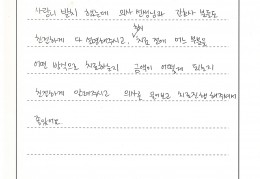 사랑니 발치 했는데 의사 선생님과 간호사 분들도
친절하게 다 설명해주시고, 치료 전에 어느 부분을
어떤 방식으로 치료하는지 금액이 어떻게 되는지
친절하게 안내해주시고 의사를 물어보고 치료진행 해주셔서
좋았어요